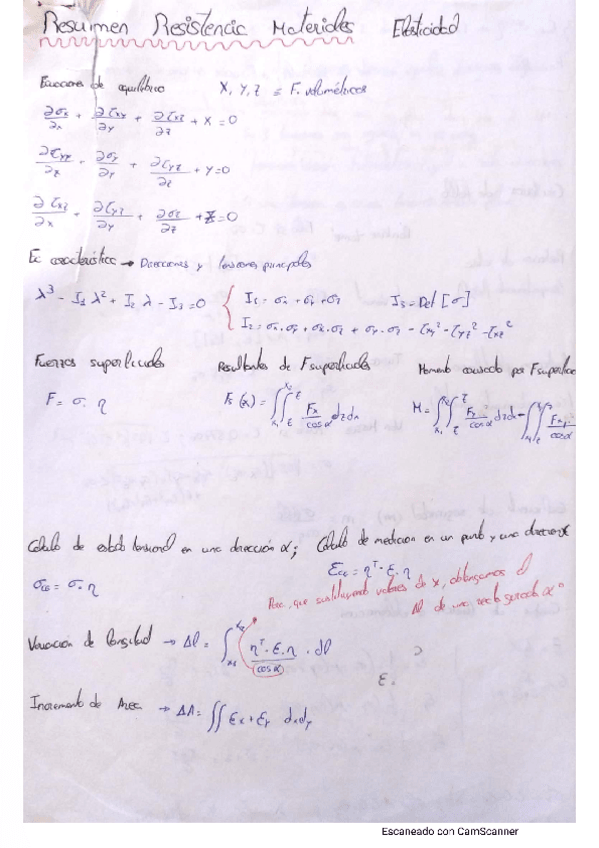 Resumen Resistencia Materiales Elasticidad
Ecuaciones de equilibrio X, Y, Z ≡ F. volumétricas
∂σx/∂x + ∂τxy/∂y + ∂τxz/∂z + X = 0
∂τyz/∂z + ∂σy/∂y + ∂τyz/∂z + Y = 0
∂τxz/∂x + ∂τyz/∂y + ∂σz/∂z + Z = 0
Ec característica → Direcciones y tensiones principales
λ³ - I₁ λ² + I₂ λ - I₃ = 0 { I₁ = σx + σy + σz I₃ = Det [σ]
I₂ = σx·σy + σx·σz + σy·σz - τxy² - τyz² - τxz²
Fuerzas superficiales Resultantes de F superficiales Momento causado por F superficiales
F = σ · η
Calculo de estado tensional en una dirección α; Calculo de medicion en un punto y una direccion α
σα = σ · η
εα = ηᵀ · ε · η
Para que sustituyendo valores de x, obtengamos el
Δl de una recta girada α°
Variación de longitud → Δl = ∫ ηᵀ · ε · η / cos α · dl
ε =
Incremento de Area → ΔA = ∬ εx + εy dxdy
Escaneado con CamScanner